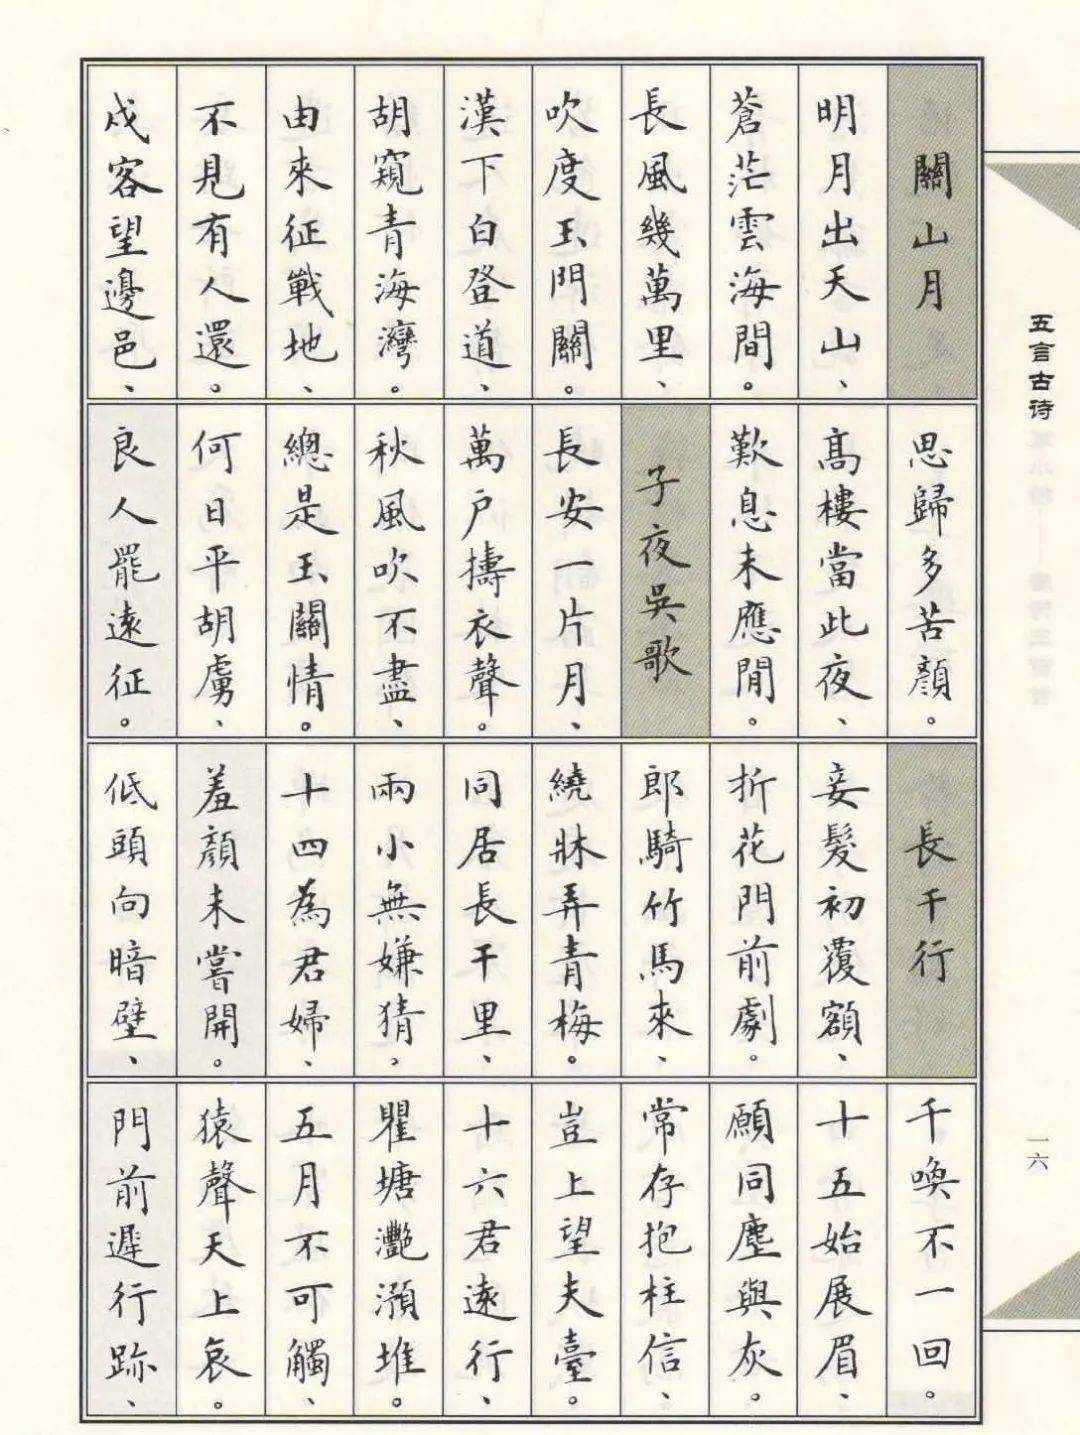 關山月
明月出天山、
蒼茫雲海間。
長風幾萬里、
吹度玉門關。
漢下白登道、
胡窺青海灣。
由來征戰地、
不見有人還。
戍客望邊邑、
思歸多苦顏。
高樓當此夜、
歎息未應閒。
子夜吳歌
長安一片月、
萬戶擣衣聲。
秋風吹不盡、
總是玉關情。
何日平胡虜、
良人罷遠征。
長干行
妾髮初覆額、
折花門前劇。
郎騎竹馬來、
繞牀弄青梅。
同居長干里、
兩小無嫌猜。
十四為君婦、
羞顏未嘗開。
低頭向暗壁、
千喚不一回。
十五始展眉、
願同塵與灰。
常存抱柱信、
豈上望夫臺。
十六君遠行、
瞿塘灩澦堆。
五月不可觸、
猿聲天上哀。
門前遲行跡、
五言古诗
一六